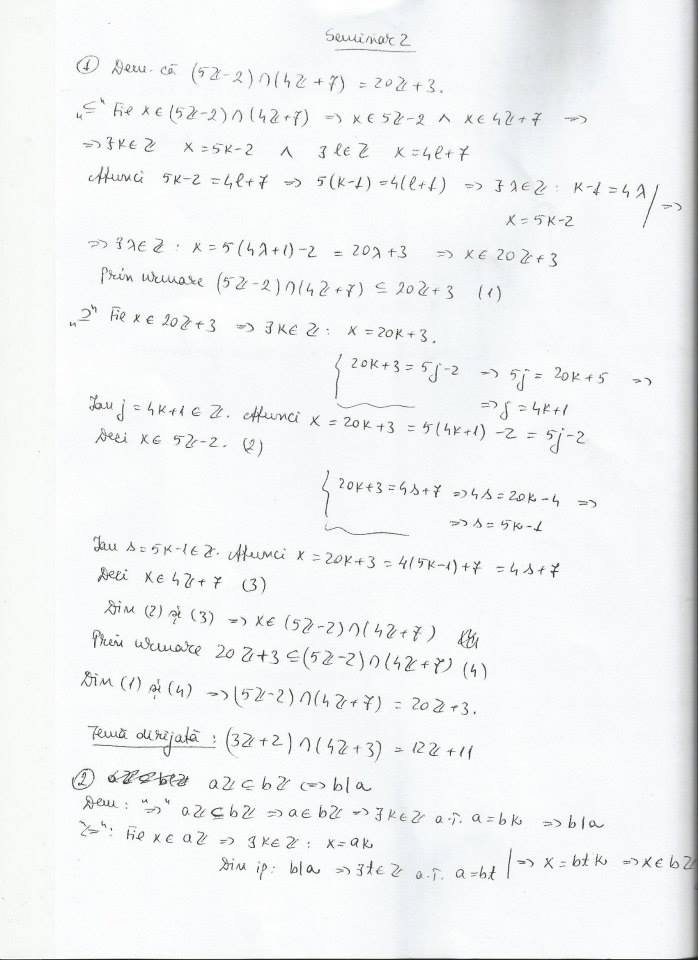 Seminar 2
① Dem. că (5ℤ-2)∩(4ℤ+7) = 20ℤ+3.
„⊆" Fie x∈(5ℤ-2)∩(4ℤ+7) => x∈5ℤ-2 ∧ x∈4ℤ+7 =>
=> ∃k∈ℤ x=5k-2 ∧ ∃l∈ℤ x=4l+7
Atunci 5k-2=4l+7 => 5(k-1)=4(l+1) => ∃λ∈ℤ: k-1=4λ | =>
x=5k-2
=> ∃λ∈ℤ: x=5(4λ+1)-2 = 20λ+3 => x∈20ℤ+3
Prin urmare (5ℤ-2)∩(4ℤ+7) ⊆ 20ℤ+3 (1)
„⊇" Fie x∈20ℤ+3 => ∃k∈ℤ: x=20k+3.
20k+3=5j-2 => 5j=20k+5 =>
=> j=4k+1
Iau j=4k+1∈ℤ. Atunci x=20k+3=5(4k+1)-2=5j-2
Deci x∈5ℤ-2. (2)
20k+3=4s+7 => 4s=20k-4 =>
=> s=5k-1
Iau s=5k-1∈ℤ. Atunci x=20k+3=4(5k-1)+7=4s+7
Deci x∈4ℤ+7 (3)
Din (2) și (3) => x∈(5ℤ-2)∩(4ℤ+7)
Prin urmare 20ℤ+3⊆(5ℤ-2)∩(4ℤ+7) (4)
Din (1) și (4) => (5ℤ-2)∩(4ℤ+7) = 20ℤ+3.
Temă dirijată: (3ℤ+2)∩(4ℤ+3) = 12ℤ+11
② aℤ⊆bℤ <=> b|a
Dem: "=>" aℤ⊆bℤ => a∈bℤ => ∃k∈ℤ a.î. a=bk => b|a
"<=": Fie x∈aℤ => ∃k∈ℤ: x=ak
Din ip: b|a => ∃t∈ℤ a.î. a=bt | => x=btk => x∈bℤ